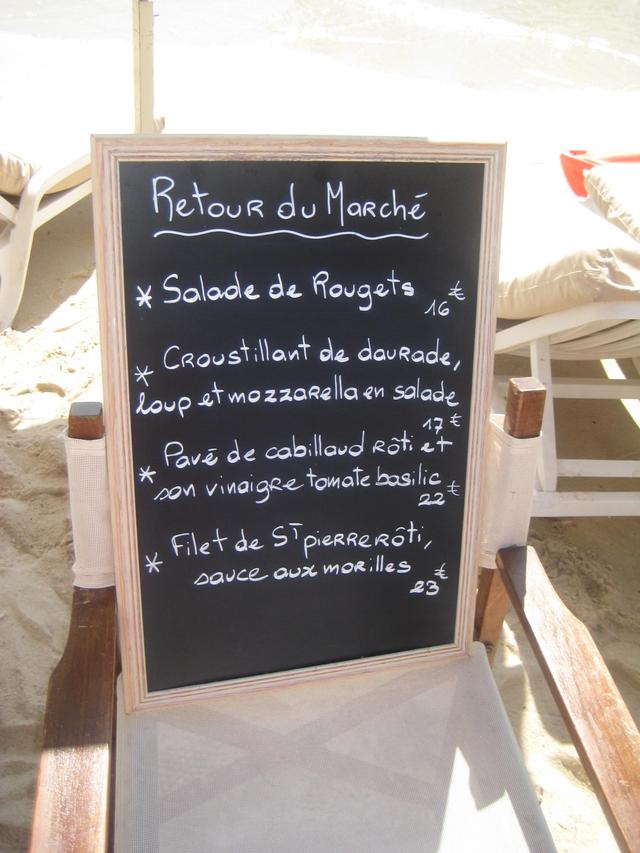 Retour du Marché
* Salade de Rougets 16 €
* Croustillant de daurade,
loup et mozzarella en salade
17 €
* Pavé de cabillaud rôti et
son vinaigre tomate basilic
22 €
* Filet de St pierre rôti,
sauce aux morilles
23 €